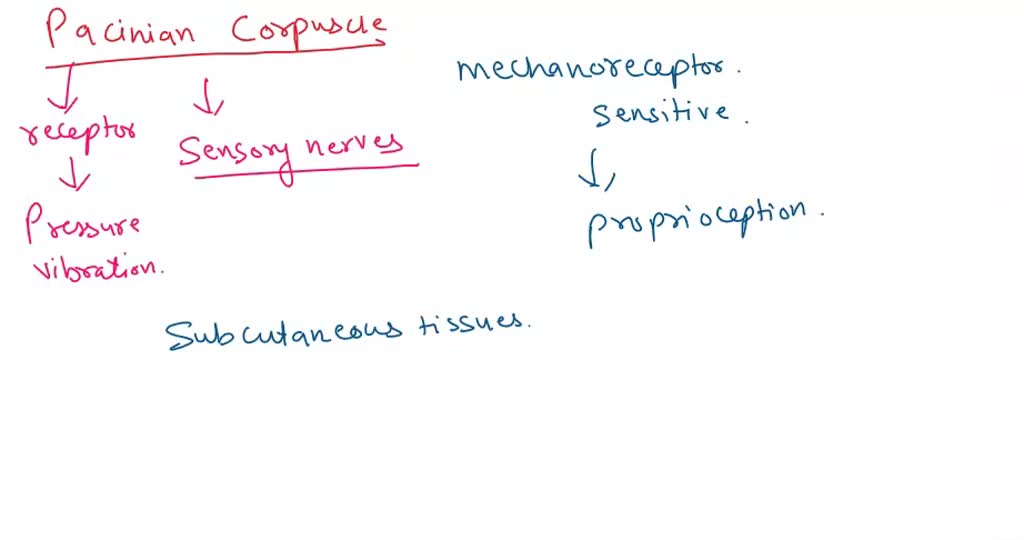 Pacinian Corpuscle
receptor
Sensory nerves
Pressure
vibration.
mechanoreceptor.
sensitive.
proprioception.
Subcutaneous tissues.